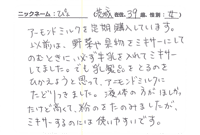 ニックネーム：ひな 茨城 在住、39歳、性別（女）
アーモンドミルクを定期購入しています。
以前は、野菜や果物をミキサーにして
のむときに、必ず牛乳を入れてミキサー
してました。でも乳製品をとるのを
ひかえようと思って、アーモンドミルクに
たどりつきました。液体の方がほしか
ったけど高くて、粉のをたのみましたが、
ミキサーするのには使いやすいです。